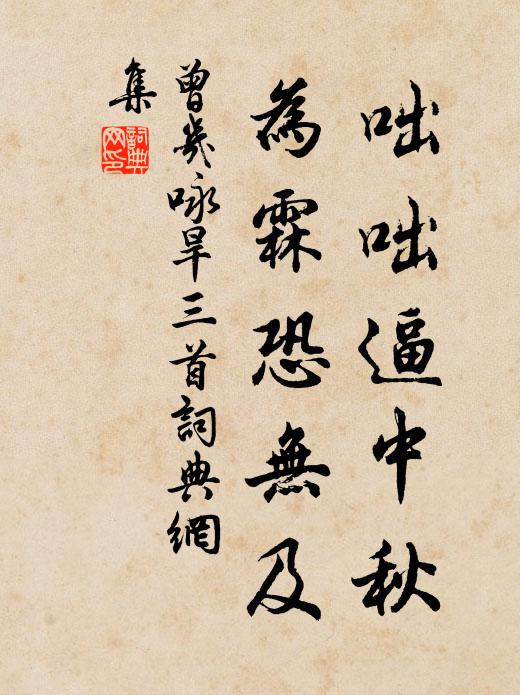 咄咄逼中秋
為霖恐無及
曾幾咏旱三首詞典網
集
詞典
网印